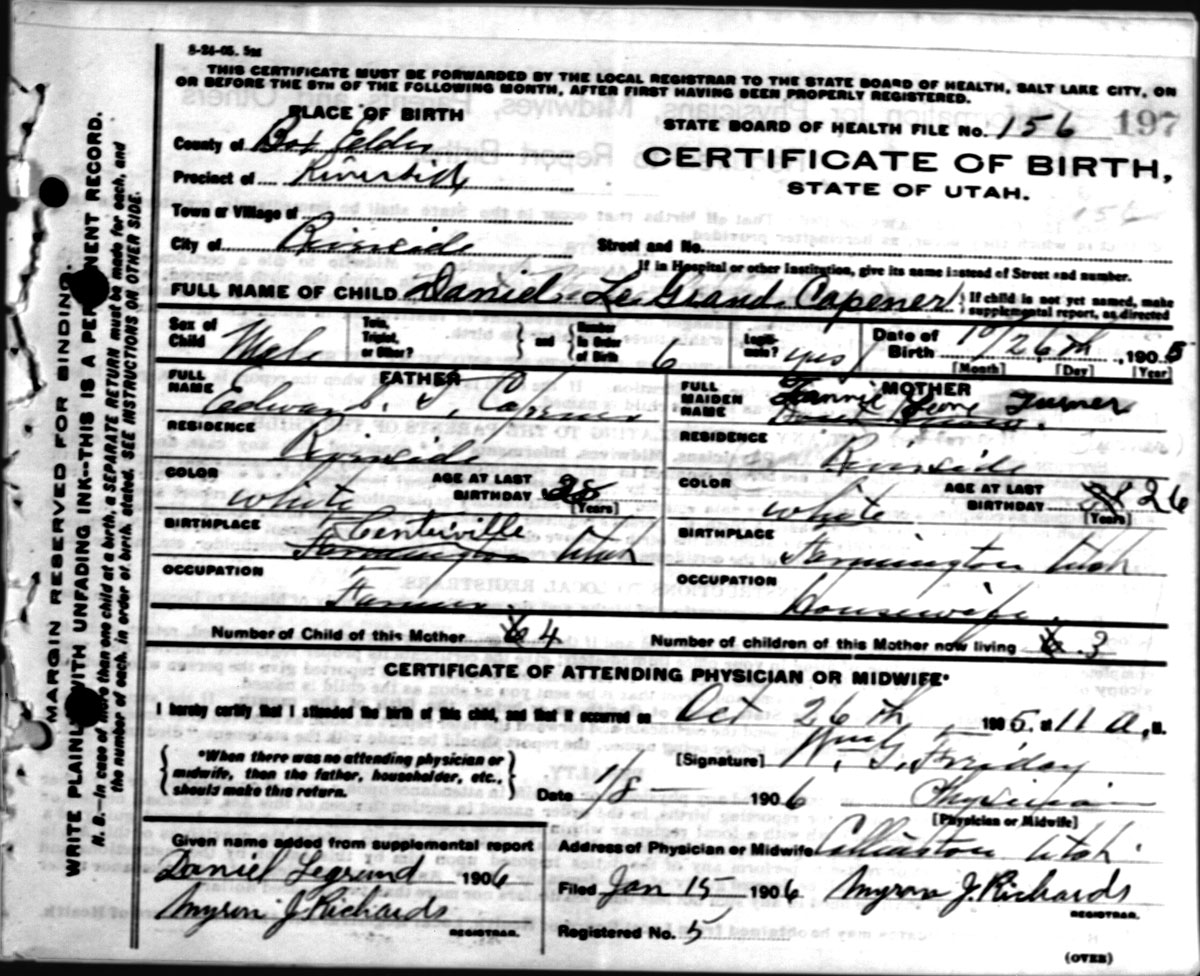 8-24-05. 5m
THIS CERTIFICATE MUST BE FORWARDED BY THE LOCAL REGISTRAR TO THE STATE BOARD OF HEALTH, SALT LAKE CITY, ON
OR BEFORE THE 5TH OF THE FOLLOWING MONTH, AFTER FIRST HAVING BEEN PROPERLY REGISTERED.
PLACE OF BIRTH
County of Box Elder
Precinct of Riverside
Town or Village of
City of Riverside
STATE BOARD OF HEALTH FILE No. 156 197
CERTIFICATE OF BIRTH,
STATE OF UTAH.
156
Street and No.
If in Hospital or other Institution, give its name instead of Street and number.
FULL NAME OF CHILD Daniel Le Grand Capener } If child is not yet named, make supplemental report, as directed
Sex of Child Male Twin, Triplet, or Other? } and { Number in Order of Birth 6 Legitimate? yes Date of Birth 10/26th, 1905
[Month] [Day] [Year]
FATHER
FULL NAME Edward S. T. Capener
RESIDENCE Riverside
COLOR white AGE AT LAST BIRTHDAY 28
[Years]
BIRTHPLACE Centerville Farmington Utah
OCCUPATION Farmer.
MOTHER
FULL MAIDEN NAME Fannie Turner
RESIDENCE Riverside
COLOR white AGE AT LAST BIRTHDAY 26
[Years]
BIRTHPLACE Farmington Utah
OCCUPATION housewife.
Number of Child of this Mother 6 4 Number of children of this Mother now living 6. 3
CERTIFICATE OF ATTENDING PHYSICIAN OR MIDWIFE*
I hereby certify that I attended the birth of this child, and that it occurred on Oct 26th, 1905, at 11 a, M.
{ *When there was no attending physician or midwife, then the father, householder, etc., should make this return. }
[Signature] Wm. G. Friday
Date 1/8 1906 Physician
[Physician or Midwife]
Given name added from supplemental report
Daniel Legrand 1906
Myron J. Richards
REGISTRAR.
Address of Physician or Midwife Collinston Utah.
Filed Jan 15 1906 Myron J. Richards
REGISTRAR.
Registered No. 5
(OVER)
MARGIN RESERVED FOR BINDING.
WRITE PLAINLY WITH UNFADING INK--THIS IS A PERMANENT RECORD.
N. B.--In case of more than one child at a birth, a SEPARATE RETURN must be made for each, and
the number of each, in order of birth, stated. SEE INSTRUCTIONS ON OTHER SIDE.